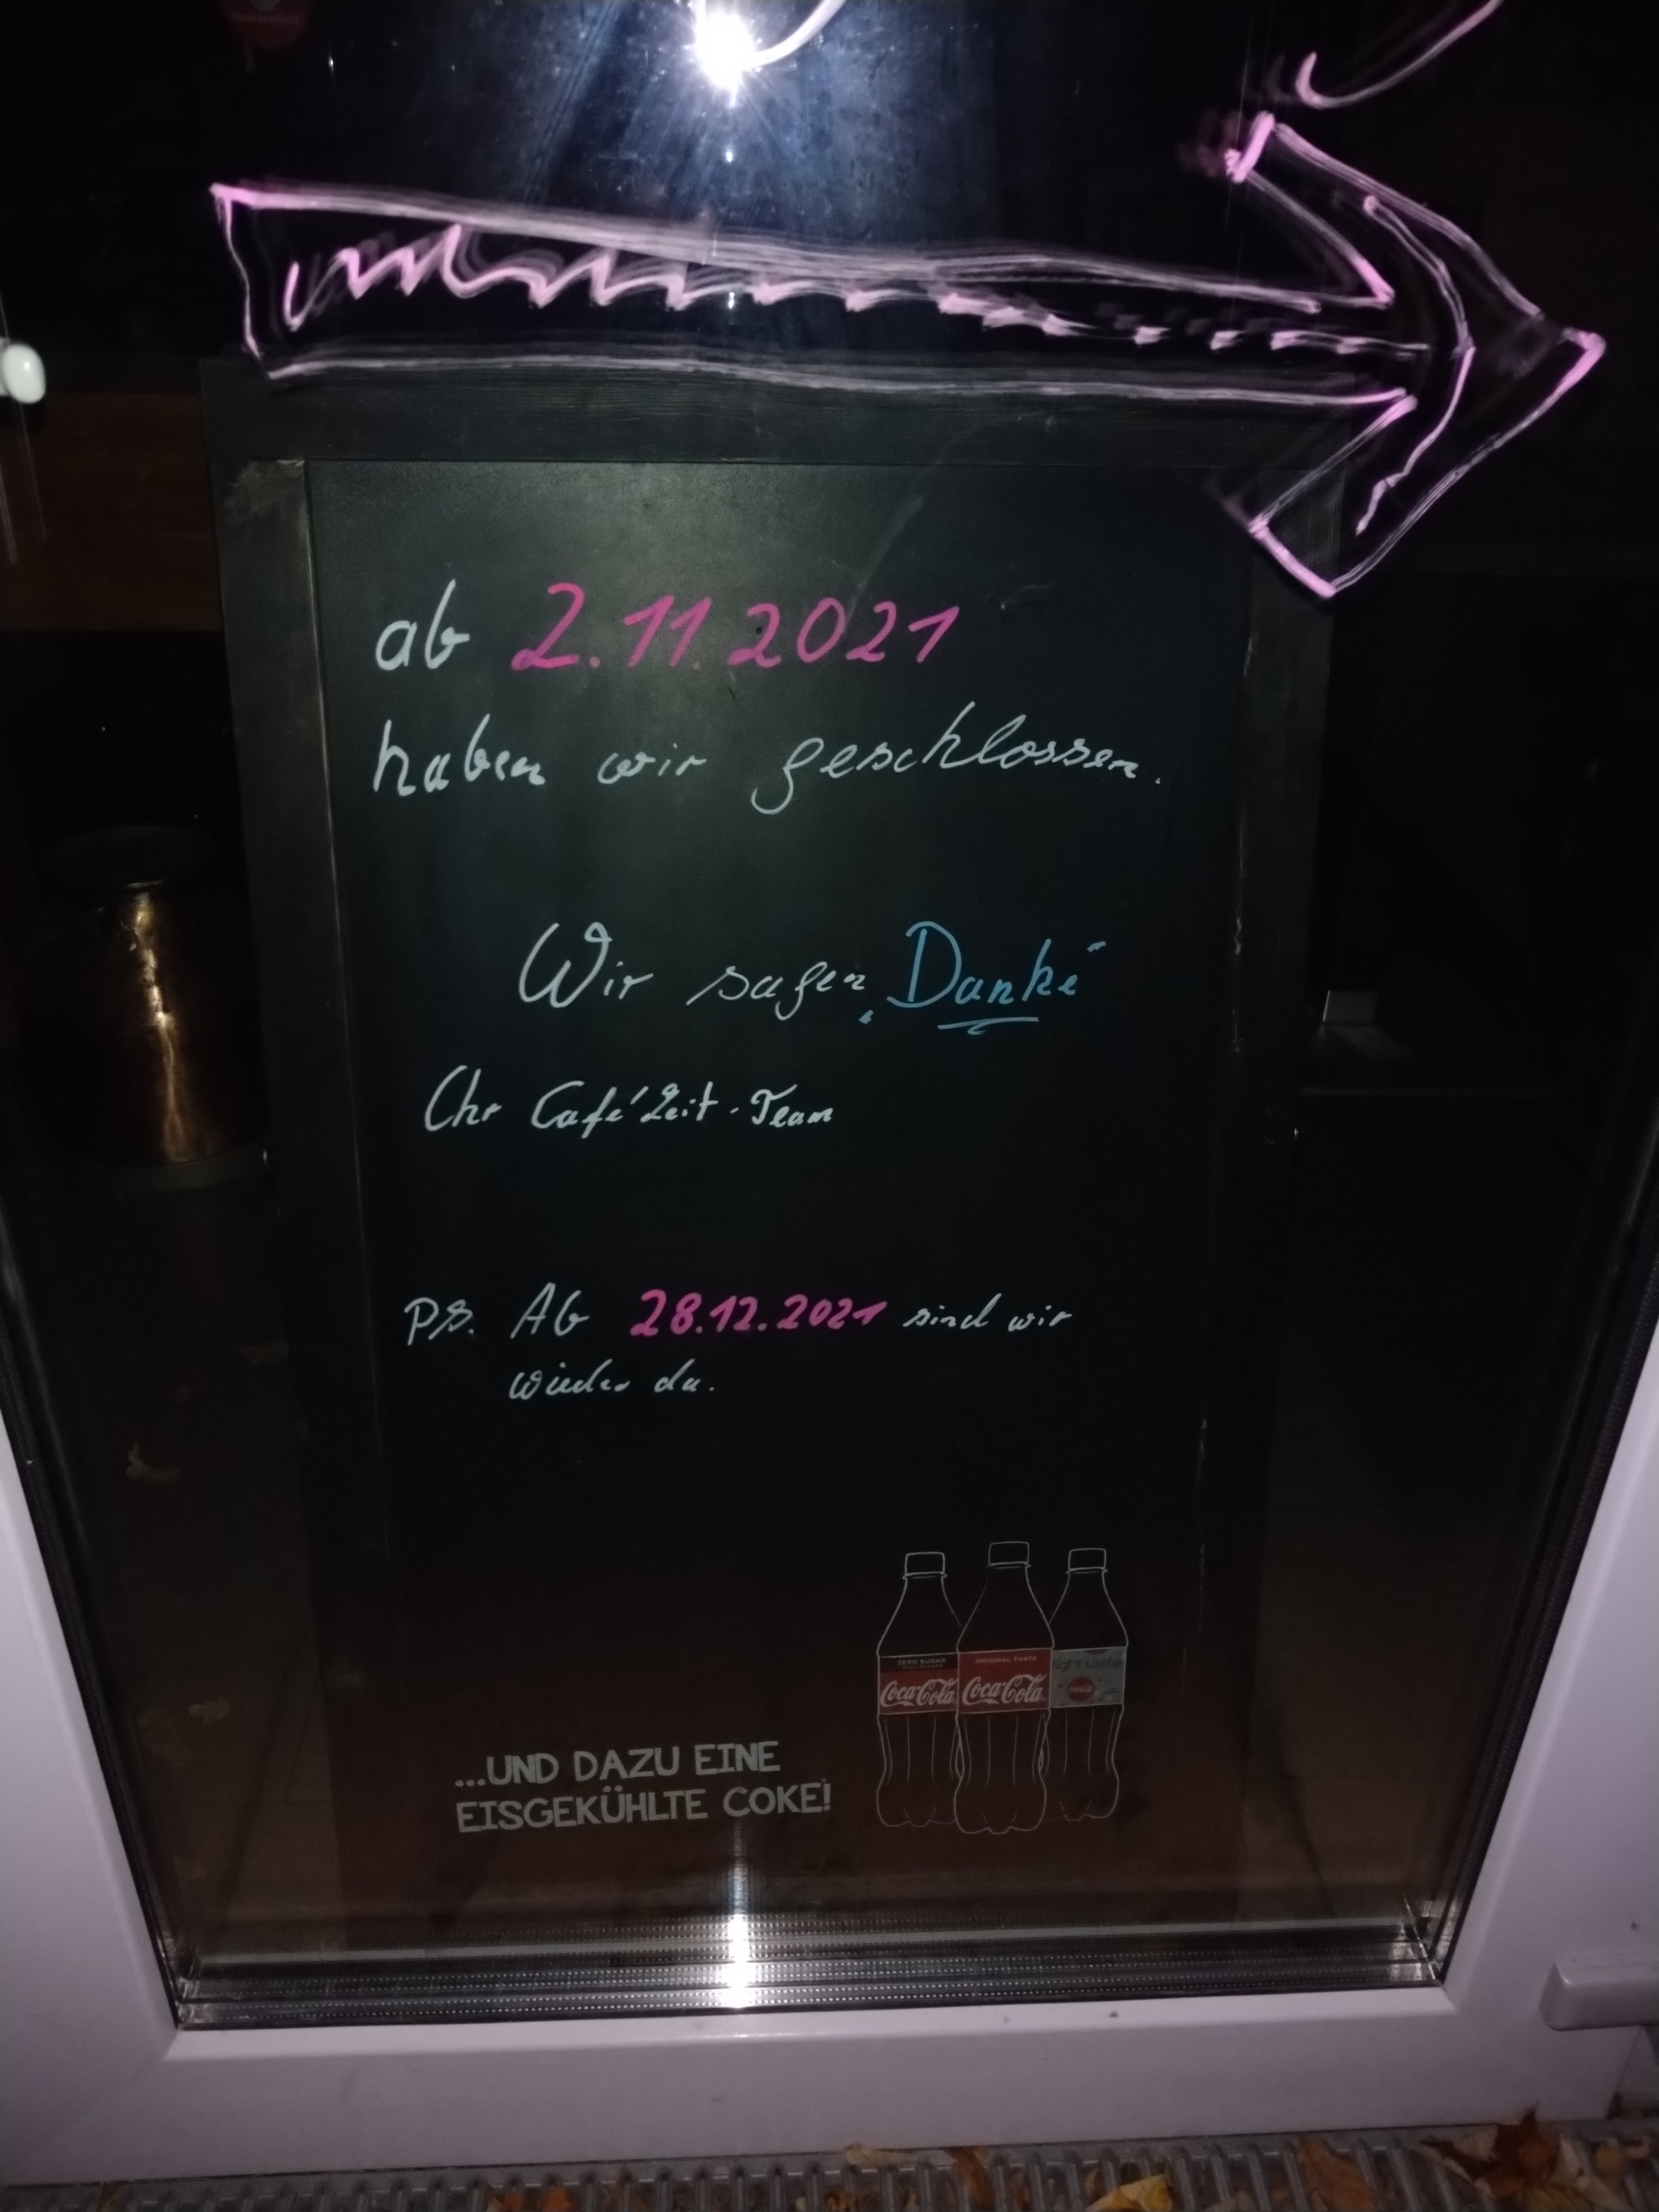 ab 2.11.2021
haben wir geschlossen.
Wir sagen „Danke"
Ihr Café Zeit-Team
PS. Ab 28.12.2021 sind wir
wieder da.
ZERO SUGAR
Coca-Cola
ORIGINAL TASTE
Coca-Cola
light taste
Coca-Cola
...UND DAZU EINE
EISGEKÜHLTE COKE!